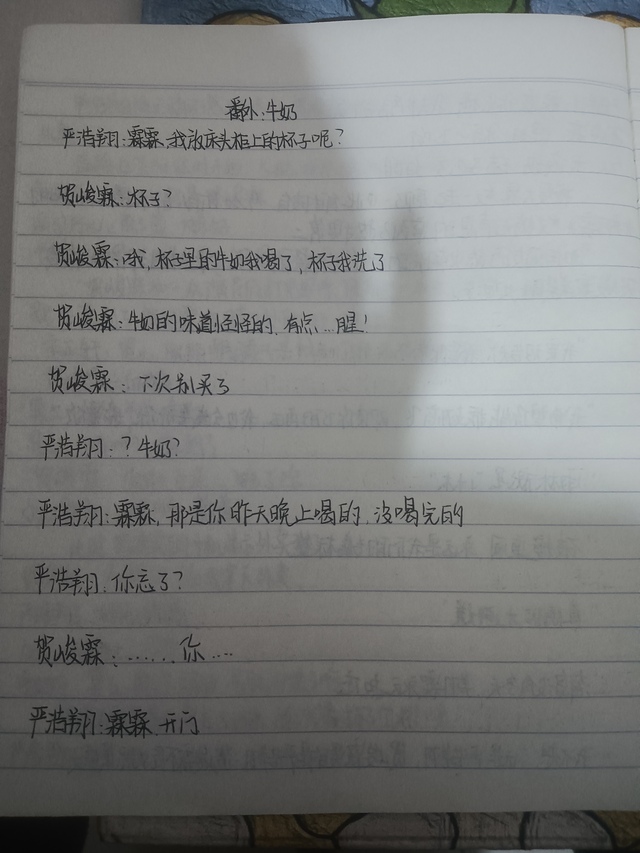 番外:牛奶
严浩翔:霖霖,我放床头柜上的杯子呢?
贺峻霖:杯子?
贺峻霖:哦,杯子里的牛奶我喝了,杯子我洗了
贺峻霖:牛奶的味道怪怪的,有点...腥!
贺峻霖:下次别买了
严浩翔:?牛奶?
严浩翔:霖霖,那是你昨天晚上喝的,没喝完的
严浩翔:你忘了?
贺峻霖:......你....
严浩翔:霖霖,开门